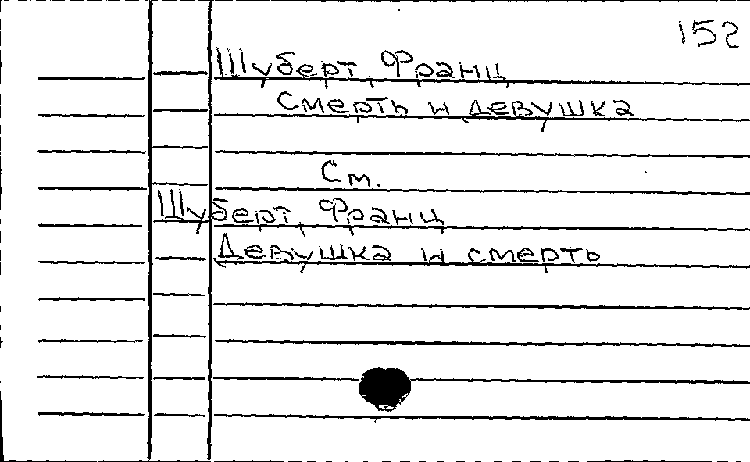 152
Шуберт, Франц
Смерть и девушка
См.
Шуберт, Франц
Девушка и смерть